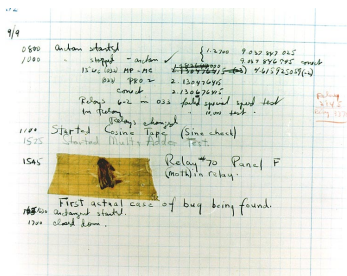 9/9
0800 Antan started
1000 " stopped - antan ✓ { 1.2700 9.037 847 025
9.037 846 795 correct
13" uc (032) MP - MC 2.130476415 (-3) 4.615925059 (-2)
(033) PRO 2 2.130476415
correct 2.130676415
Relays 6-2 in 033 failed special speed test
in relay " test
Relays changed
1100 Started Cosine Tape (Sine check)
1525 Started Multi Adder Test
1545 Relay #70 Panel F
(moth) in relay.
First actual case of bug being found.
1630 antangent started.
1700 closed down.